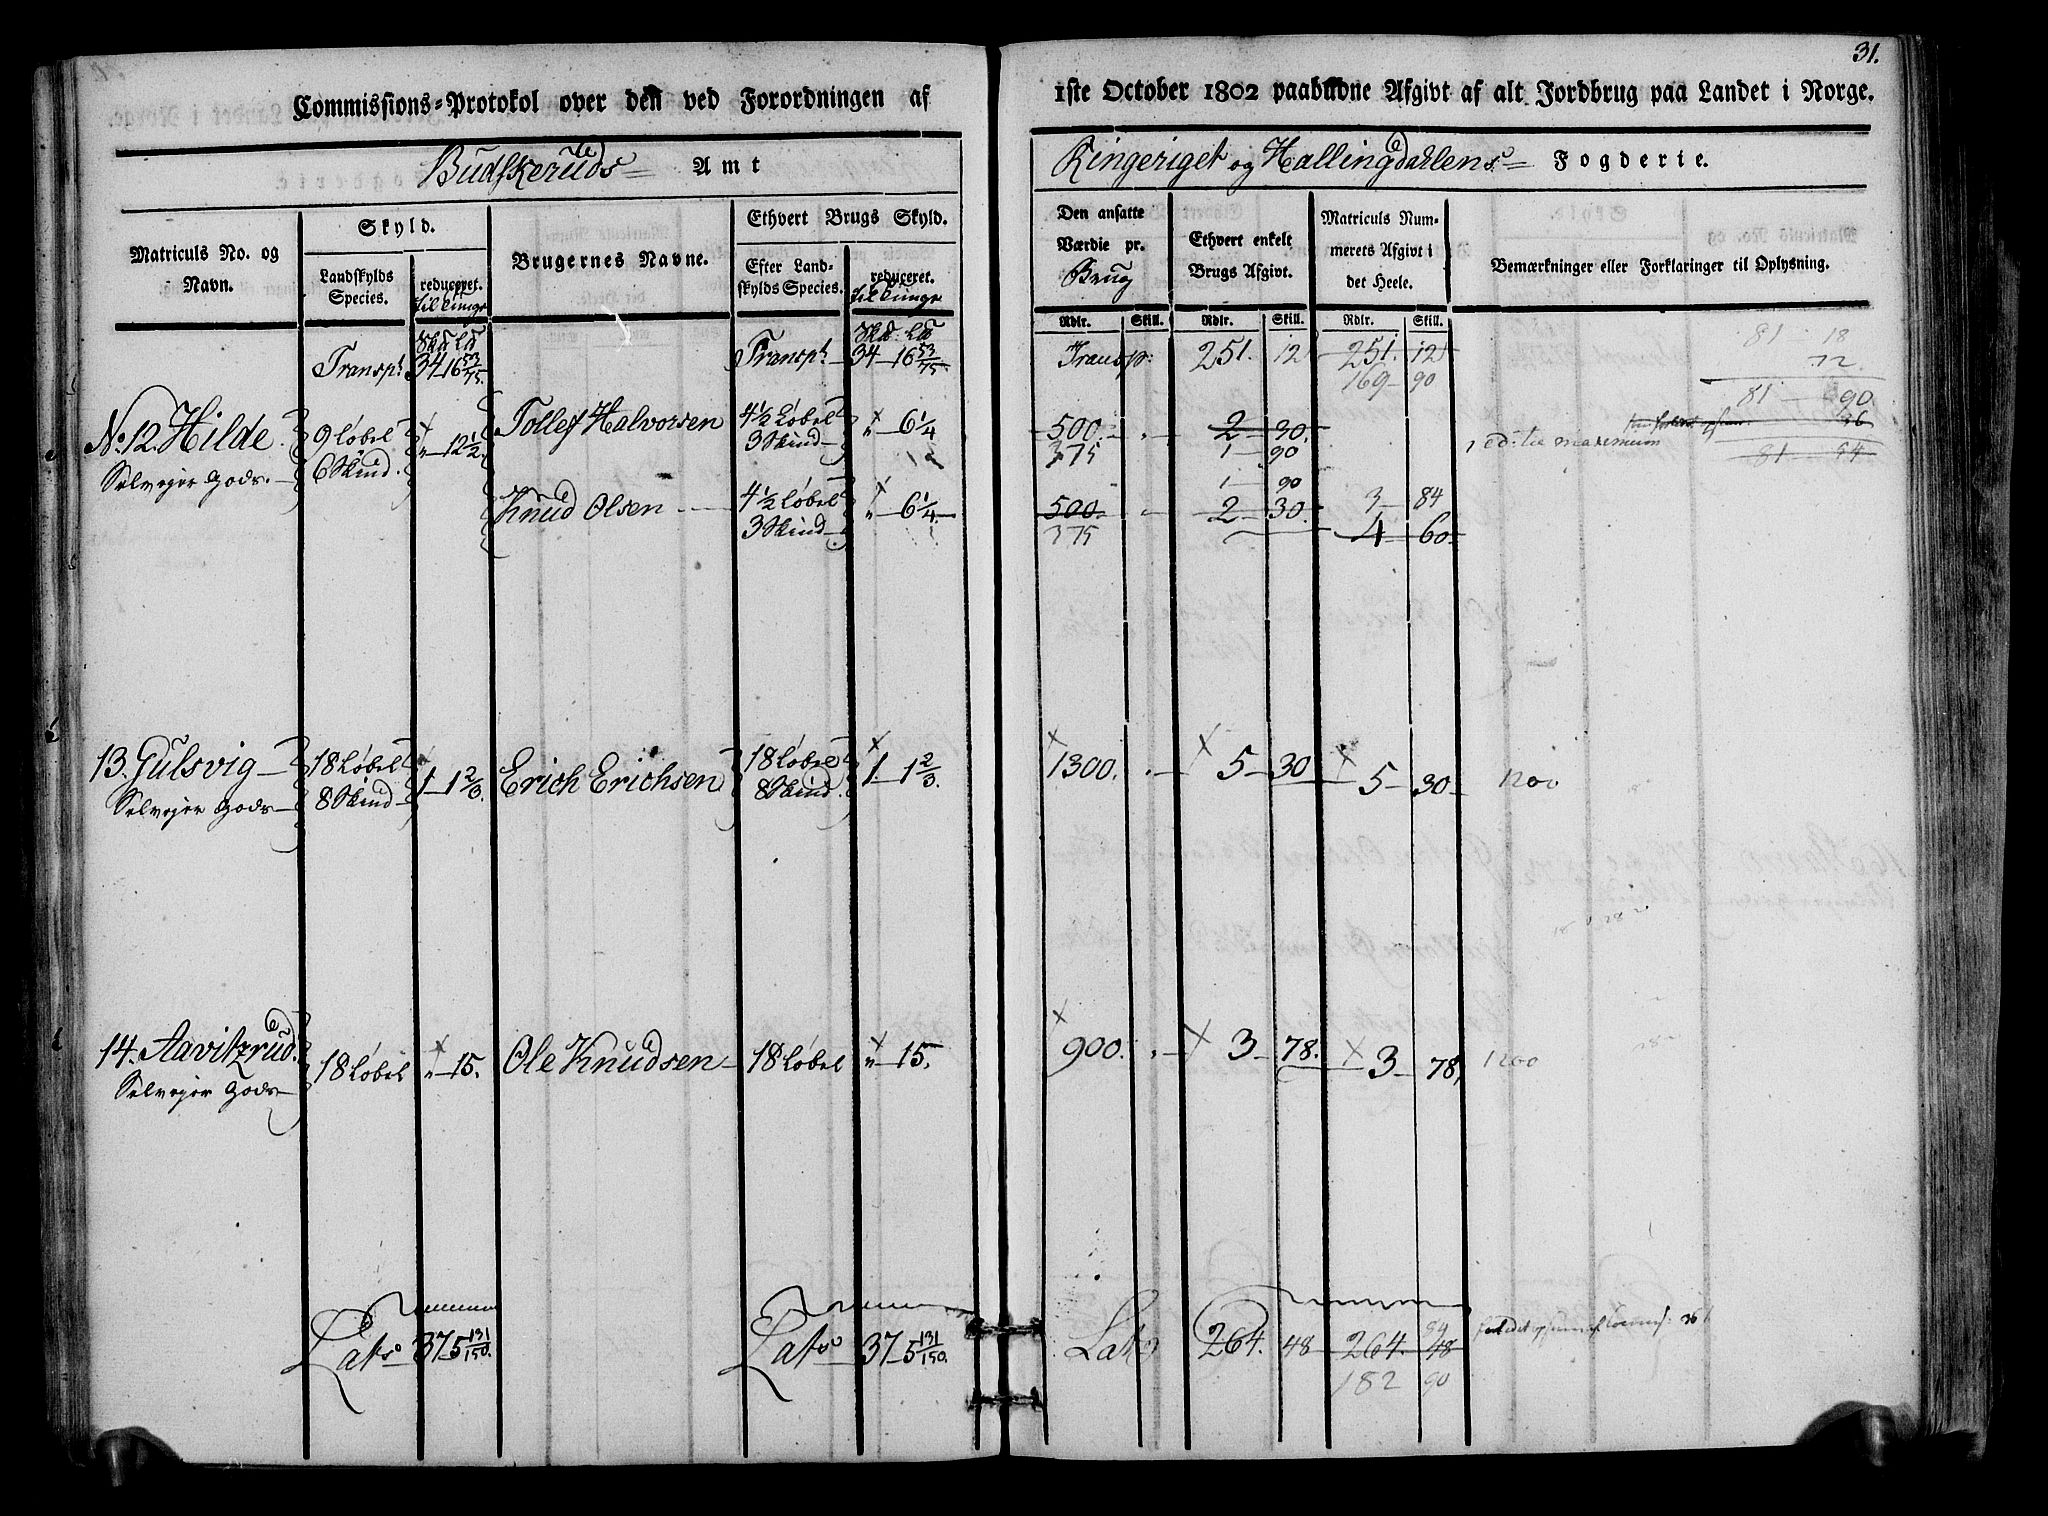 31.
Commissions-Protokol over den ved Forordningen af 1ste October 1802 paabudne Afgivt af alt Jordbrug paa Landet i Norge.
Budskeruds Amt
Ringeriget og Hallingdahlens Fogderie.
Matriculs No. og Navn.
Skyld.
Landskylds Species.
reduceret. til tunge
Brugernes Navne.
Ethvert Brugs Skyld.
Efter Landskylds Species.
reduceret. til tunge
Den ansatte Værdie pr. Brug
Ethvert enkelt Brugs Afgivt.
Matriculs Nummerets Afgivt i det Heele.
Bemærkninger eller Forklaringer til Oplysning.
Rdlr. Skill. Rdlr. Skill. Rdlr. Skill.
Transpt 34-16 53/75 Transpt 34-16 53/75 Transp: 251. 12 251. 12
169- 90
81 - 18
72.
81 - 90
36
81 - 54
No. 12. Hilde. 9 Løbel 6 Skind. " 12 1/2. Tollef Halvorsen 4 1/2 Løbel 3 Skind " 6 1/4 500. 2 - 90.
375 1 - 90
maximum
Selvejer Gods.
Knud Olsen 4 1/2 Løbel 3 Skind " 6 1/4. 500. 2 - 30. 3 - 84
1 - 90
375 4 - 60
13. Gulsvig 18 Løbel 8 Skind 1 - 1 2/3. Erich Erichsen 18 Løbel 8 Skind. 1. - 1 2/3. 1300. 5 - 30 5 - 30 1200
Selvejer Gods
14. Aavitzrud. 18 Løbel " 15. Ole Knudsen 18 Løbel " 15. 900. 3 - 78. 3 - 78. 1200
Selvejer Gods
Summa Summa Summa
Lats 37-5 131/150. Lats 37-5 131/150. Lats 264. 48 264. 48
84
182 90